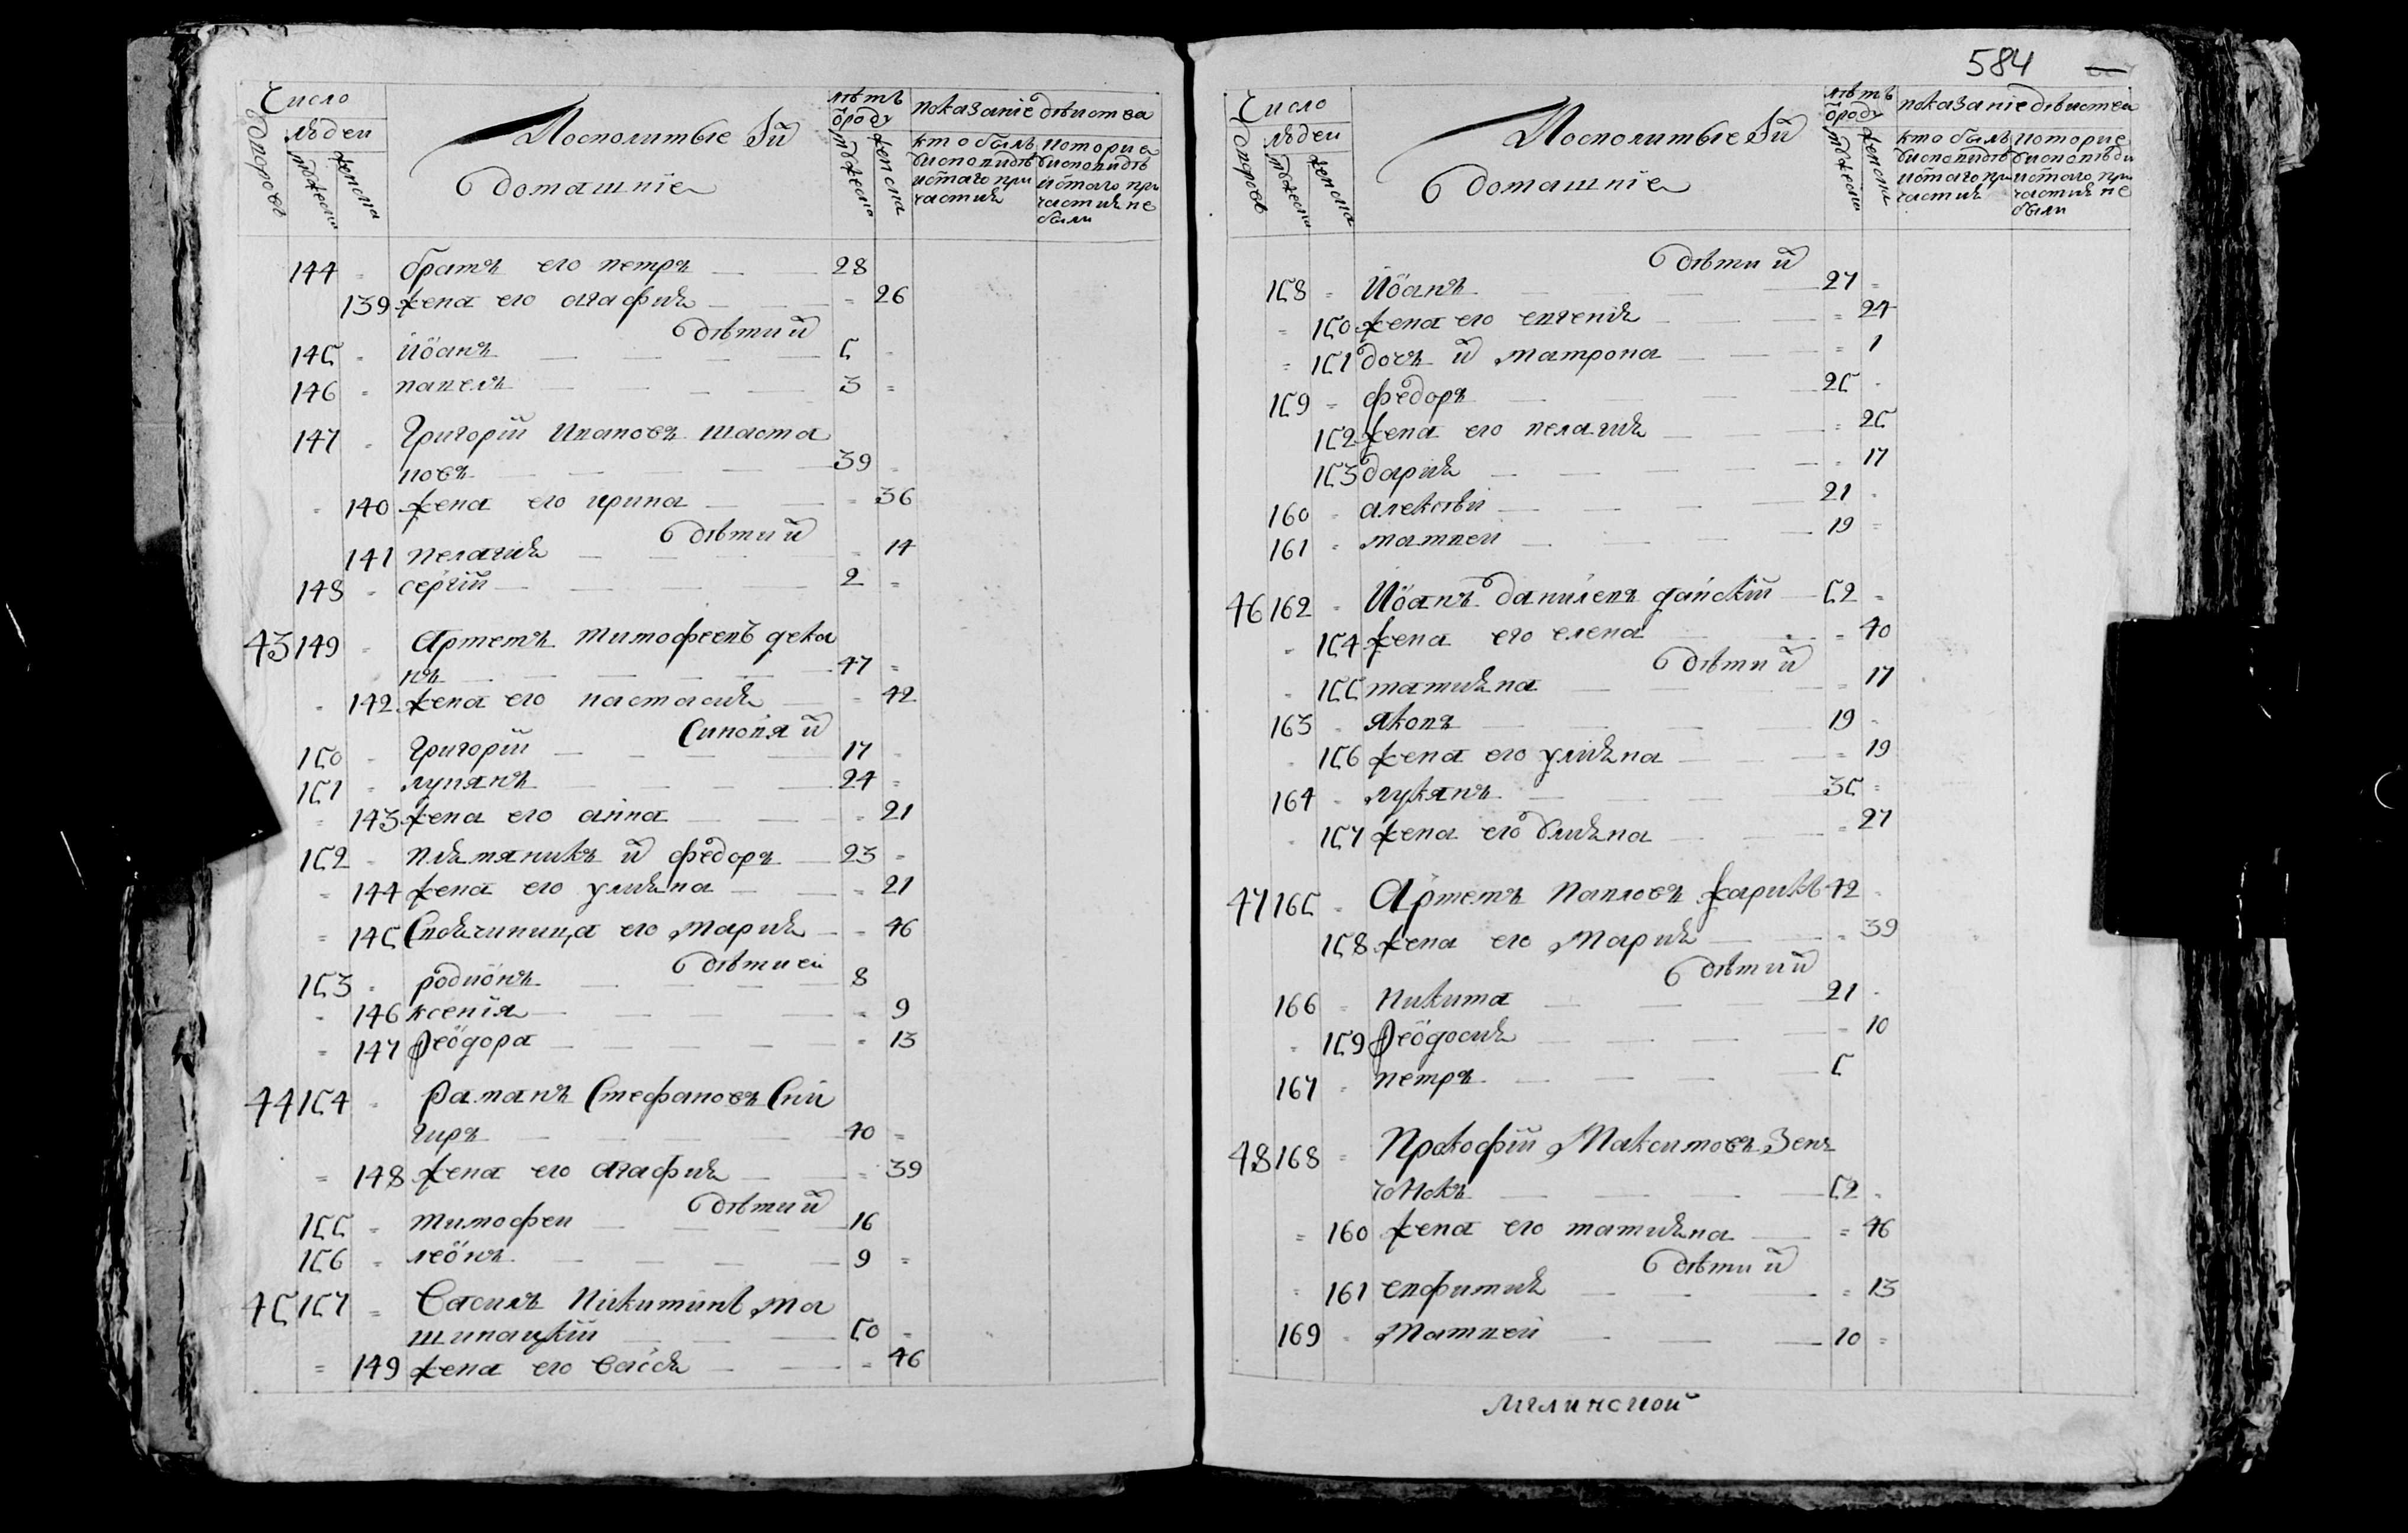 Число
людеи
дворовъ
мужеска
женска
Посполитые и҆
домашнїе
лѣтъ
ѿроду
мужеска
женска
показанїе дѣиства
кто былъ
ѵ исповѣди
и с҃таго при
частия
которие
ѵ исповѣди
и с҃таго при
частия не
были
144 братъ его петръ 28
139 жена его агафия 26
дѣти и҆
145 иѡанъ 5
146 павелъ 3
147 Григорїй Ивановъ шаста
новъ 39
140 жена его ирина 36
дѣти и҆
141 пелагия 14
148 сергїй 2
43 149 Артемъ тимофеевъ дека
нъ 47
142 жена его настасия 42
Синовя и҆
150 Григорїй 17
151 лупянъ 24
143 жена его анна 21
152 племяникъ и҆ федоръ 23
144 жена его улияна 21
145 Своячиница его Мария 46
дѣти еи
153 родиѡнъ 8
146 ксенїя 9
147 Феѡдора 13
44 154 Раманъ Стефановъ Сни
гиръ 40
148 жена его агафия 39
дѣти и҆
155 тимофеи 16
156 леѡнъ 9
45 157 Василъ Никитинъ Ма
шинацкїй 50
149 жена его Васса 46
584
Число
людеи
дворовъ
мужеска
женска
Посполитые и҆
домашнїе
лѣтъ
ѿроду
мужеска
женска
показанїе дѣиства
кто былъ
ѵ исповѣди
и с҃таго при
частия
которие
ѵ исповѣди
и с҃таго при
частия не
были
дѣти и҆
158 Иѡанъ 27
150 жена его евгения 24
151 дочъ и҆ матрона 1
159 федоръ 25
152 жена его пелагия 25
153 дария 17
160 алексѣи 21
161 матвеи 19
46 162 Иѡанъ данилевъ гаискїй 52
154 жена его елена 40
дѣти и҆
155 татияна 17
163 яковъ 19
156 жена его улияна 19
164 лукянъ 35
157 жена его улияна 27
47 165 Артемъ Павловъ жарикъ 42
158 жена его Мария 39
дѣти и҆
166 Никита 21
159 Феѡдосия 10
167 петръ 5
48 168 Прокофїй Максимовъ Зен
чонокъ 52
160 жена его татияна 46
дѣти и҆
161 евфимия 13
169 Матвеи 10
Мглинской